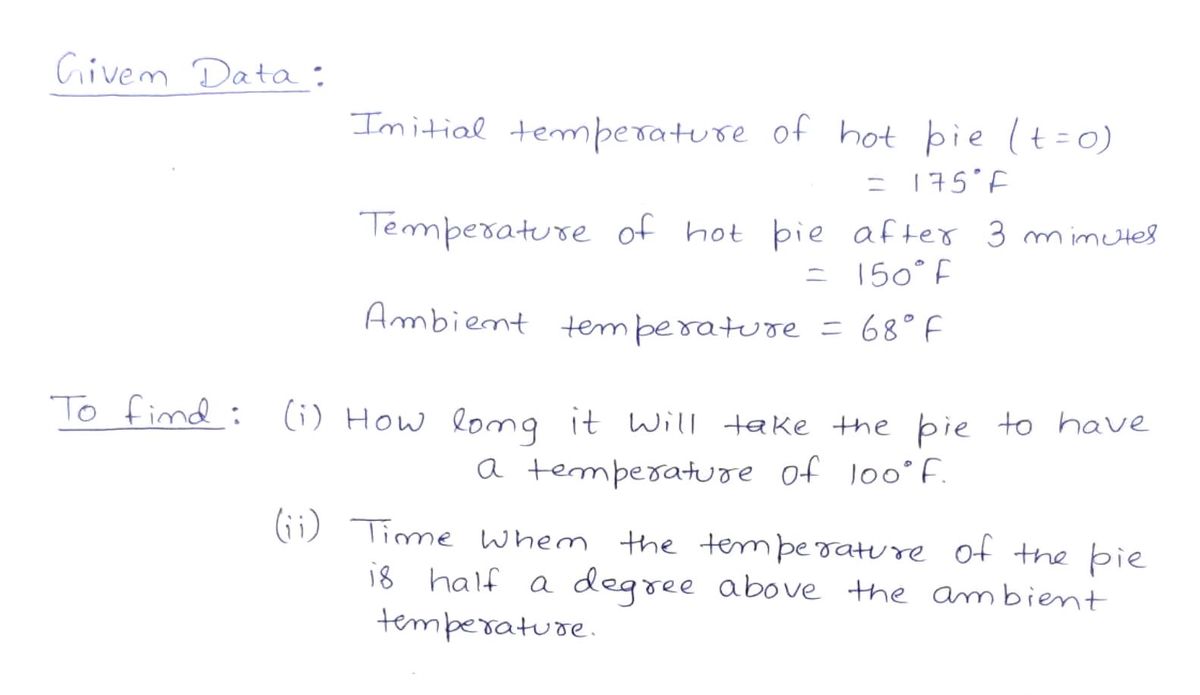 Given Data :
Initial temperature of hot pie (t=0)
= 175°F
Temperature of hot pie after 3 minutes
= 150°F
Ambient temperature = 68°F
To find : (i) How long it will take the pie to have
a temperature of 100°F.
(ii) Time when the temperature of the pie
is half a degree above the ambient
temperature.